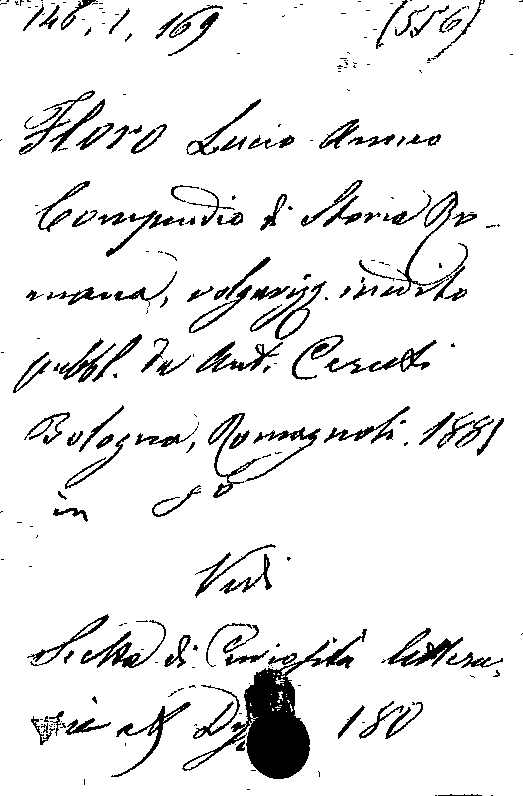 146, 1, 169 (556)
Floro Lucio Anneo
Compendio di Storia Ro-
mana, volgarizz. inedito
pubbl. da Ant. Ceruti
Bologna, Romagnoli. 1881
in 8º
Vedi
Scelta di Curiosità lettera-
rie 180